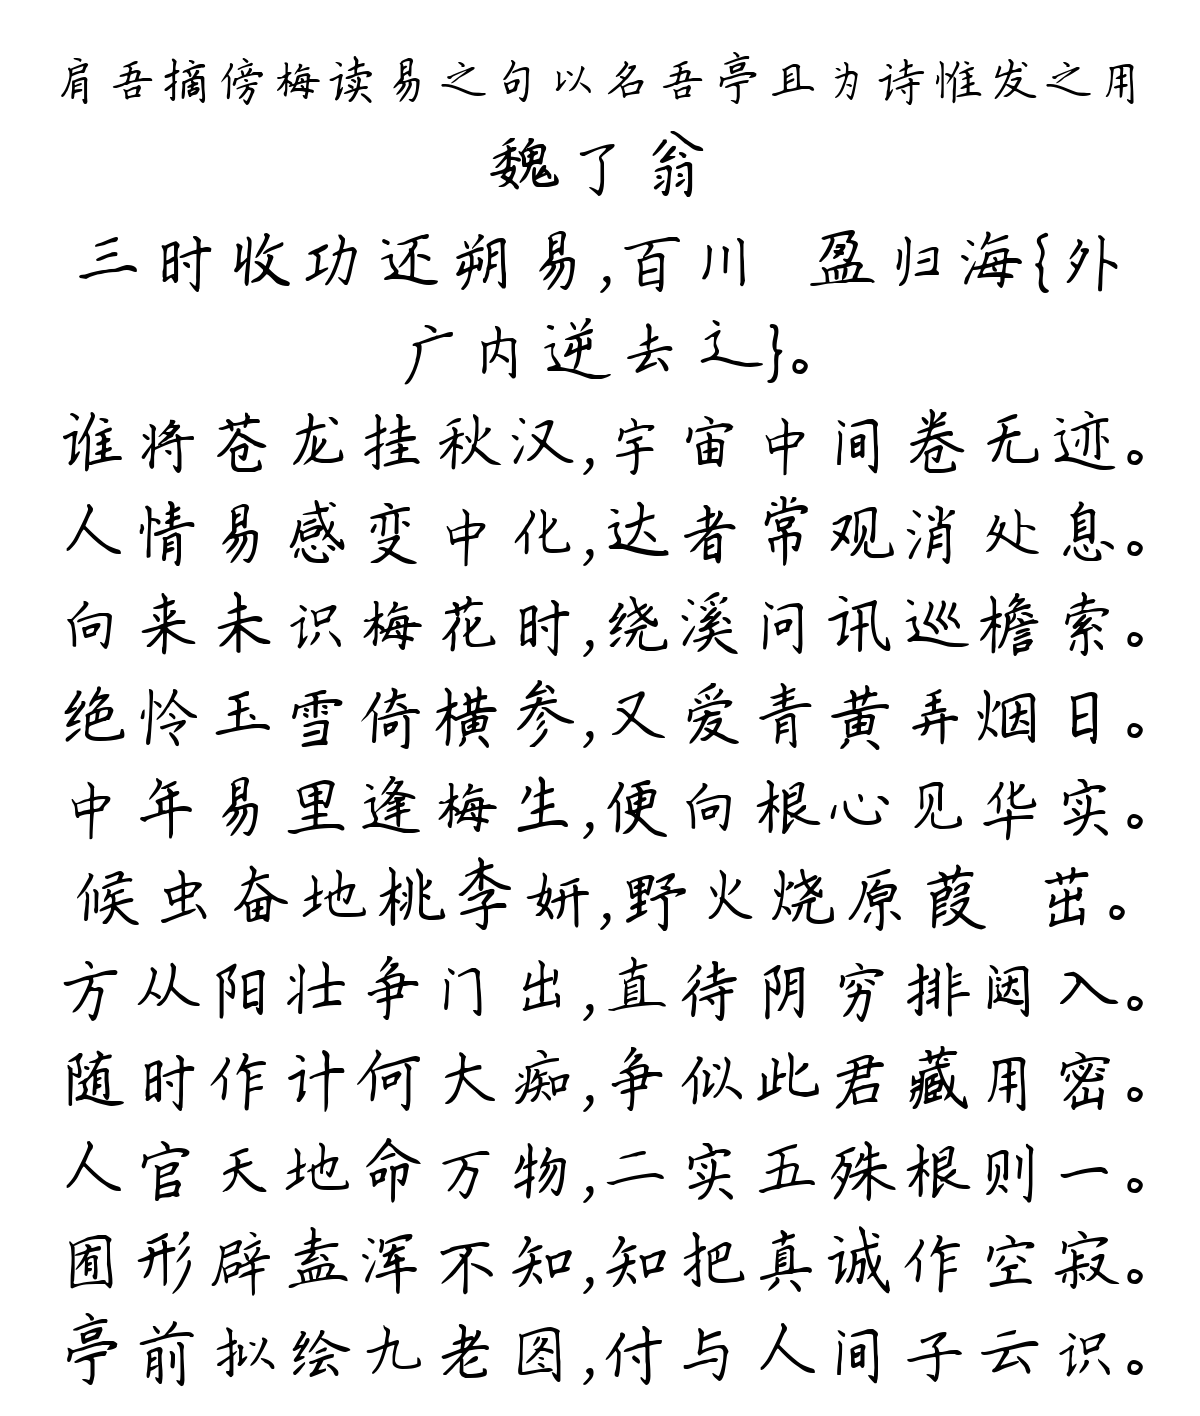 肩吾摘傍梅读易之句以名吾亭且为诗惟发之用
魏了翁
三时收功还朔易,百川 盈归海{外
广内逆去辶}。
谁将苍龙挂秋汉,宇宙中间卷无迹。
人情易感变中化,达者常观消处息。
向来未识梅花时,绕溪问讯巡檐索。
绝怜玉雪倚横参,又爱青黄弄烟日。
中年易里逢梅生,便向根心见华实。
候虫奋地桃李妍,野火烧原葭 茁。
方从阳壮争门出,直待阴穷排闼入。
随时作计何大痴,争似此君藏用密。
人官天地命万物,二实五殊根则一。
囿形辟盍浑不知,知把真诚作空寂。
亭前拟绘九老图,付与人间子云识。